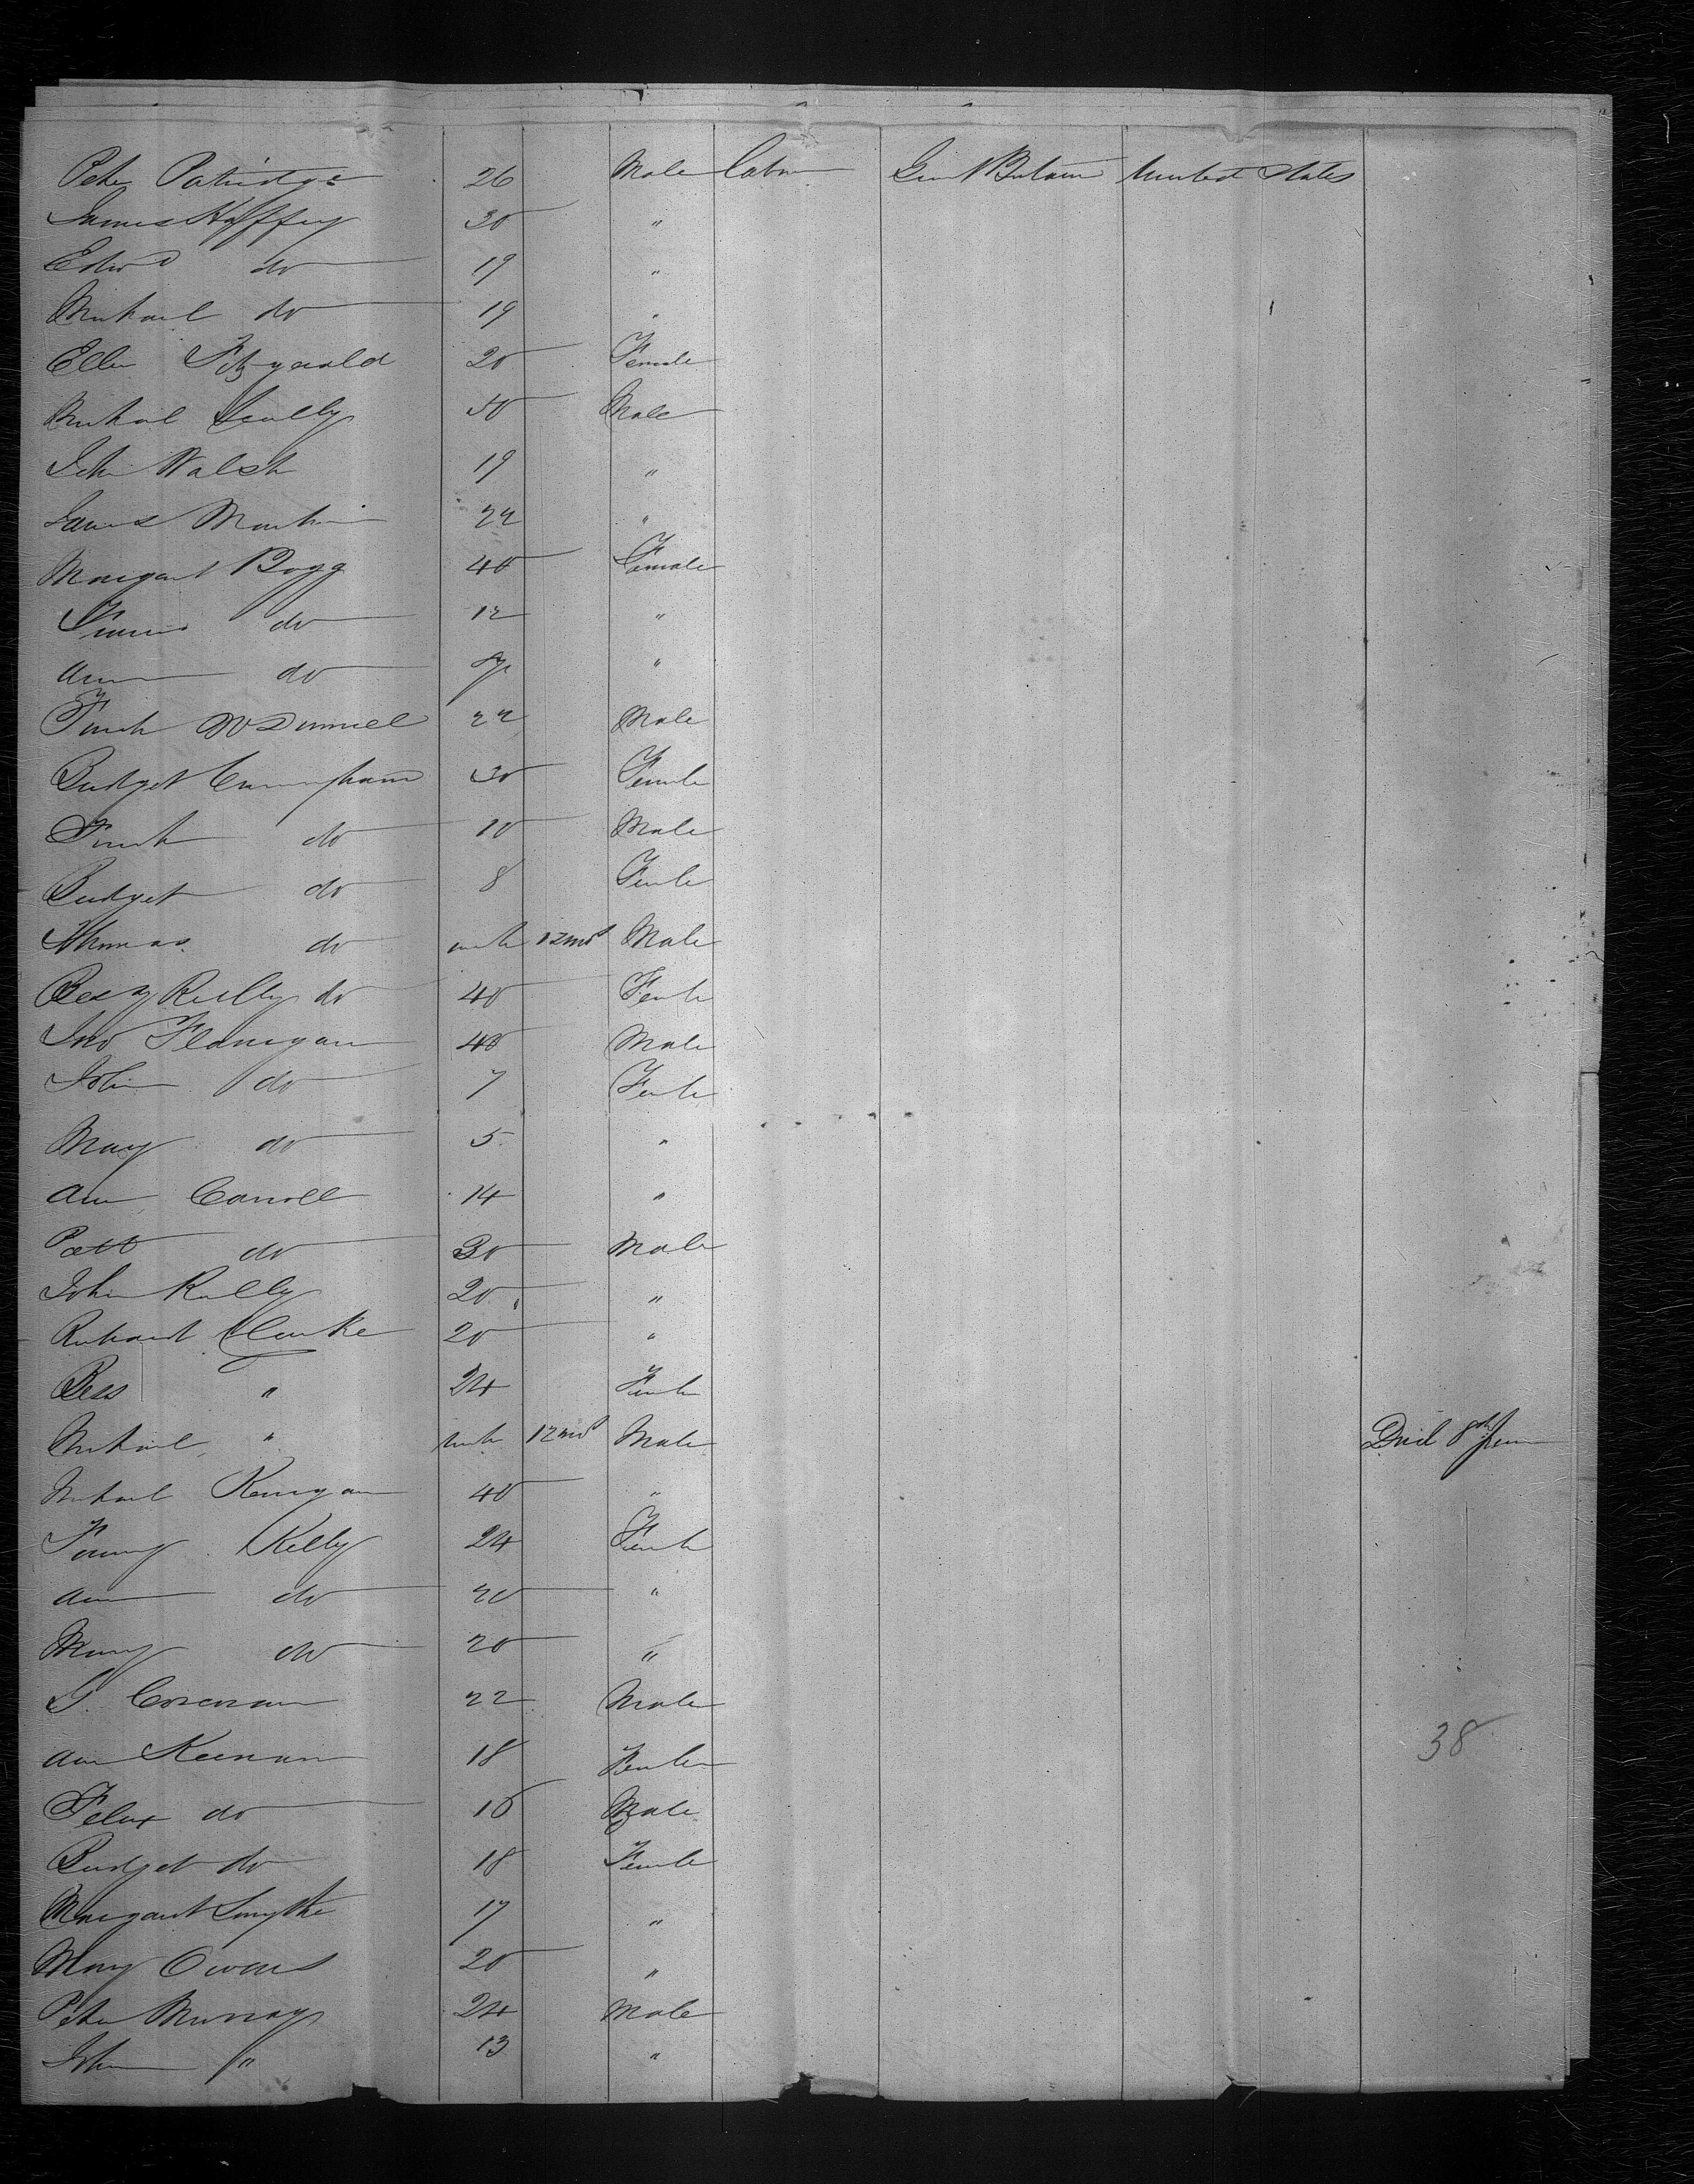 Peter Patridge 26 Male Labour Great Britain United States
James Haffey 30 "
Edwd do 19 "
Michael do 19 "
Ellen Fitzgerald 20 Female
Michael Scully 30 Male
John Walsh 19 "
James Martin 22 "
Margaret Bogg 40 Female
do 12 "
Ann do "
McDonnell 22 Male
Bridget Cunningham 30 Female
do 10 Male
Bridget do 8 Female
Thomas do under 12mos Male
Reilly do 40 Female
Jno Flanigan 40 Male
John do 7 Female
Mary do 5 "
Ann Carroll 14 "
Patt do 30 Male
John Reilly 20 "
Richard Clarke 20 "
Bess " 24 Female
Michael " under 12mos Male Died 8th
Michael Kerrigan 40 "
Kelly 24 Female
Ann do 20 "
Mary do 20 "
Corcoran 22 Male
38
Ann Keenan 18 Female
Felix do 16 Male
Bridget do 18 Female
Margaret Smythe 17 "
Mary Owens 20 "
Peter Murray 24 Male
John " 13 "